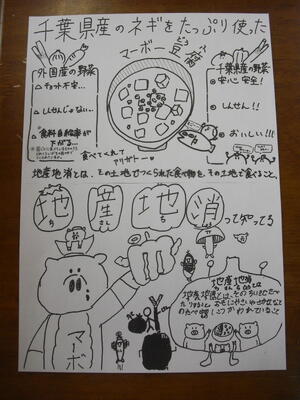 千葉県産のネギをたっぷり使った
マーボー豆腐
どうふ
外国産の野菜
△チョット不安…
△しんせんじゃない…
△食料自給率が
下がる…
千葉県産の野菜
○安心安全!
○しんせん!!
○おいしい!!!
食べてくれて
アリガトー
地産地消とは、その土地でつくられた食べ物を、その土地で食べること。
地産地消ってやってる
ち さん ち しょう
マーボ
地産地消
ち さん ち しょう
とは
地産地消とは、その